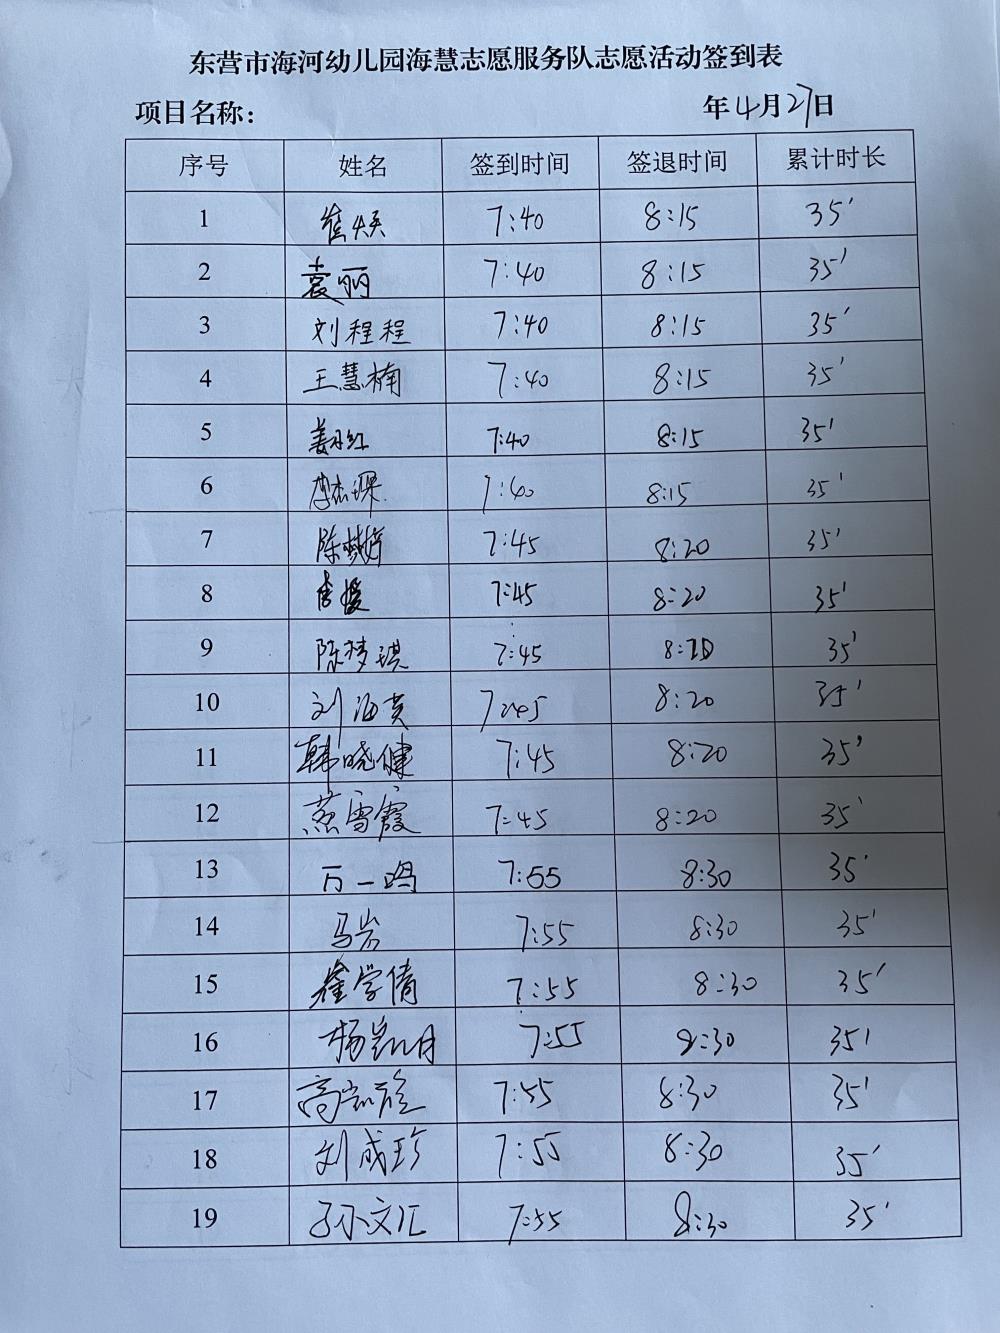 东营市海河幼儿园海慧志愿服务队志愿活动签到表
项目名称: 年4月27日
序号 姓名 签到时间 签退时间 累计时长
1 崔 7:40 8:15 35'
2 袁丽 7:40 8:15 35'
3 刘程程 7:40 8:15 35'
4 王慧楠 7:40 8:15 35'
5 姜 红 7:40 8:15 35'
6 李 7:40 8:15 35'
7 陈梦婷 7:45 8:20 35'
8 李媛 7:45 8:20 35'
9 陈梦琪 7:45 8:20 35'
10 刘海英 7:45 8:20 35'
11 韩晓健 7:45 8:20 35'
12 燕雪霞 7:45 8:20 35'
13 万一鸣 7:55 8:30 35'
14 马岩 7:55 8:30 35'
15 崔学倩 7:55 8:30 35'
16 杨凯月 7:55 8:30 35'
17 高 7:55 8:30 35'
18 刘成珍 7:55 8:30 35'
19 孙文汇 7:55 8:30 35'